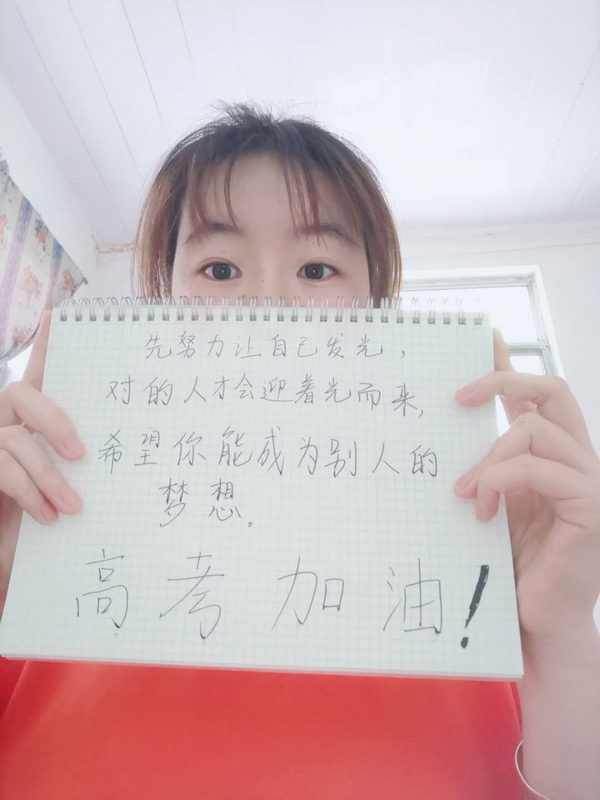 先努力让自己发光，
对的人才会迎着光而来，
希望你能成为别人的
梦想。
高考加油！